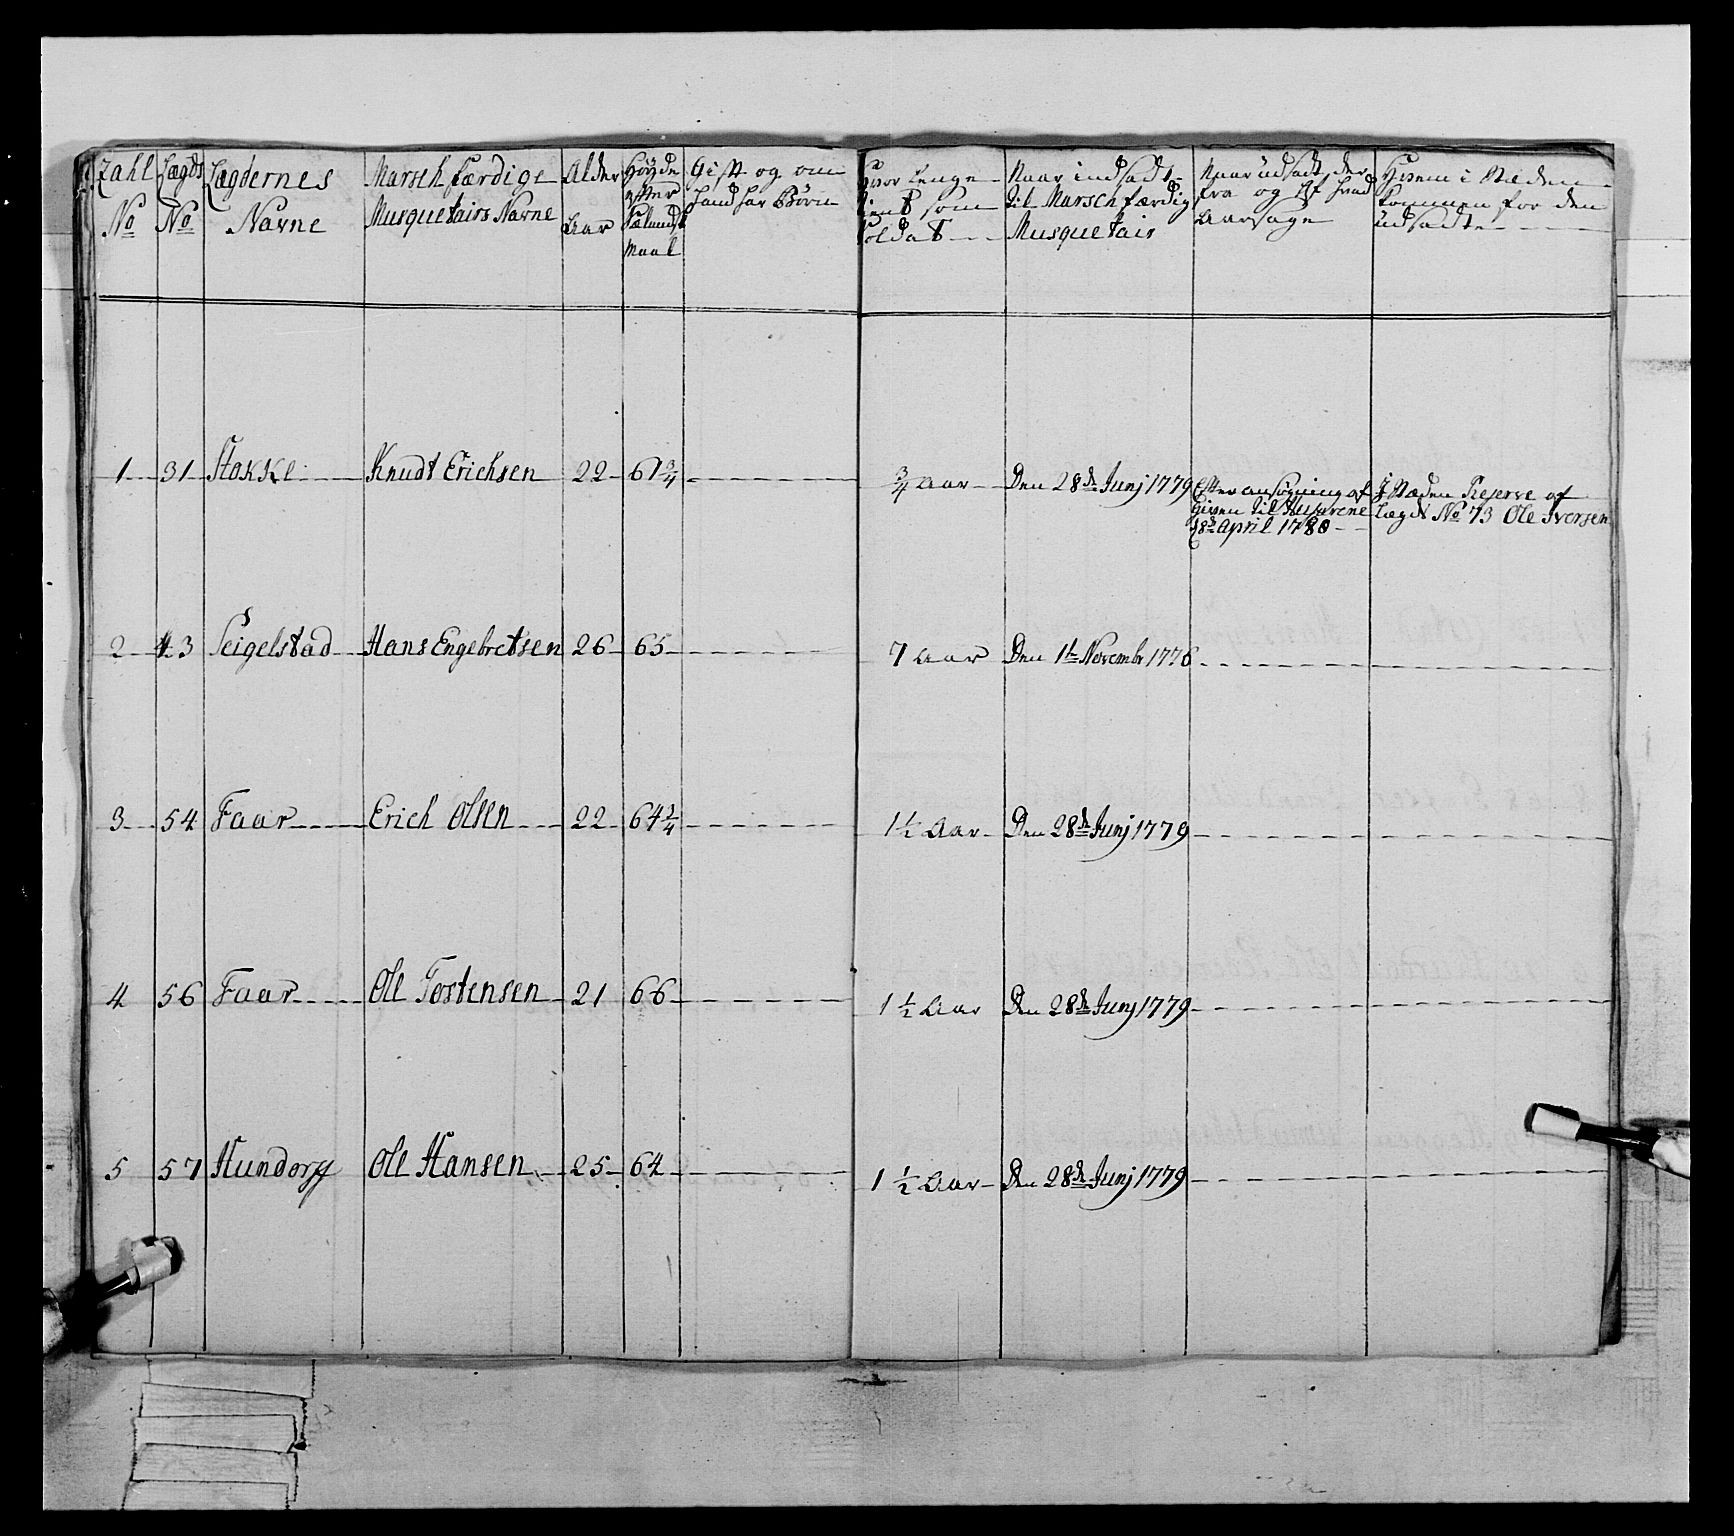 Zahl No
Lægds No
Lægdernes Navne
Marsch færdige Musquetairs Navne
Alder Aar
Höyde efter Siælandsk Maal
Gift og om hand har Börn
Hvor lenge tient som Soldat
Naar indsadt til Marsch færdig Musquetair
Naar udsadt der fra og af hvad Aarsage
Hvem i Stæden kommen for den udsadte
1 31 Stokke Knudt Erichsen 22 67 3/4 3/4 Aar Den 28de Junj 1779 Efter ansögning af Given til Husarene 18de April 1780 J Stæden Reserve af Lægd No 73 Ole Iversen
2 43 Seigelstad Hans Engebretsen 26 65 7 Aar Den 1te Novembr 1776
3 54 Faar Erich Olsen 22 64 3/4 1 1/2 Aar Den 28de Junj 1779
4 56 Faar Ole Tostensen 21 66 1 1/2 Aar Den 28de Junj 1779
5 57 Hundorp Ole Hansen 25 64 1 1/2 Aar Den 28de Junj 1779